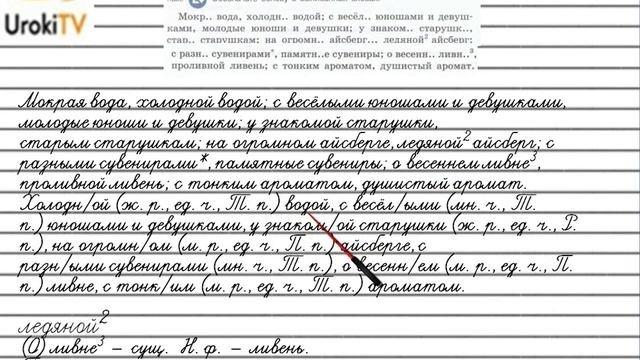 UrokiTV
Мокр.. вода, холодн.. водой; с весёл.. юношами и девуш-
ками, молодые юноши и девушки; у знаком.. старушк..,
стар.. старушкам; на огромн.. айсберг.., ледяной² айсберг;
с разн.. сувенирами*, памятн..е сувениры; о весенн.. ливн..³,
проливной ливень; с тонким ароматом, душистый аромат.
Мокрая вода, холодной водой; с весёлыми юношами и девушками,
молодые юноши и девушки; у знакомой старушки,
старым старушкам; на огромном айсберге, ледяной² айсберг; с
разными сувенирами*, памятные сувениры; о весеннем ливне³,
проливной ливень; с тонким ароматом, душистый аромат.
Холодн/ой (ж. р., ед. ч., Т. п.) водой, с весёл/ыми (мн. ч., Т.
п.) юношами и девушками, у знаком/ой старушки (ж. р., ед. ч., Р.
п.), на огромн/ом (м. р., ед. ч., П. п.) айсберге, с
разн/ыми сувенирами (мн. ч., Т. п.), о весенн/ем (м. р., ед. ч., П.
п.) ливне, с тонк/им (м. р., ед. ч., Т. п.) ароматом.
ледяной²
(О) ливне³ – сущ. Н. ф. – ливень.